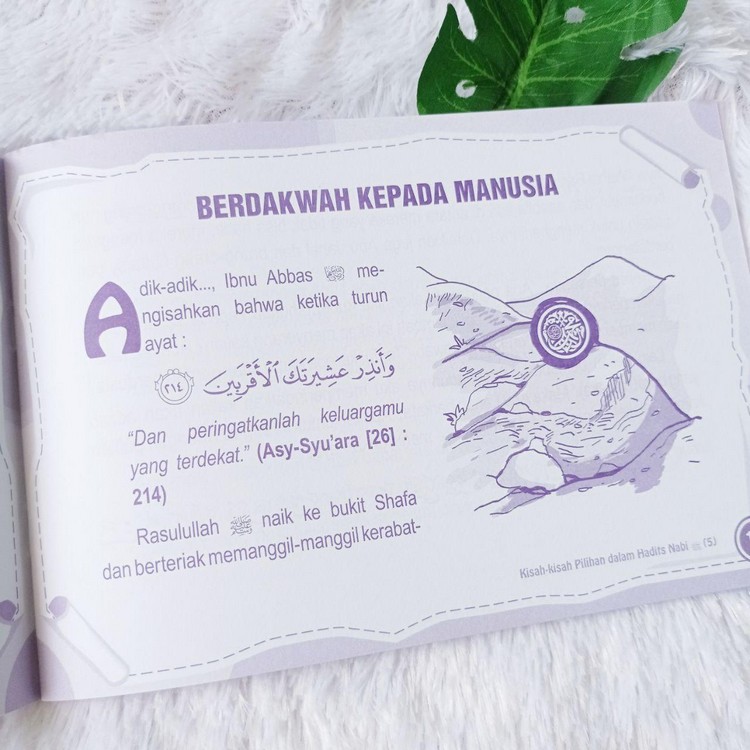 BERDAKWAH KEPADA MANUSIA
Adik-adik..., Ibnu Abbas me-
ngisahkan bahwa ketika turun
ayat :
وَأَنذِرْ عَشِيرَتَكَ ٱلْأَقْرَبِينَ ٢١٤
“Dan peringatkanlah keluargamu
yang terdekat.” (Asy-Syu’ara [26] :
214)
Rasulullah ﷺ naik ke bukit Shafa
dan berteriak memanggil-manggil kerabat-
Kisah-kisah Pilihan dalam Hadits Nabi ﷺ (5)